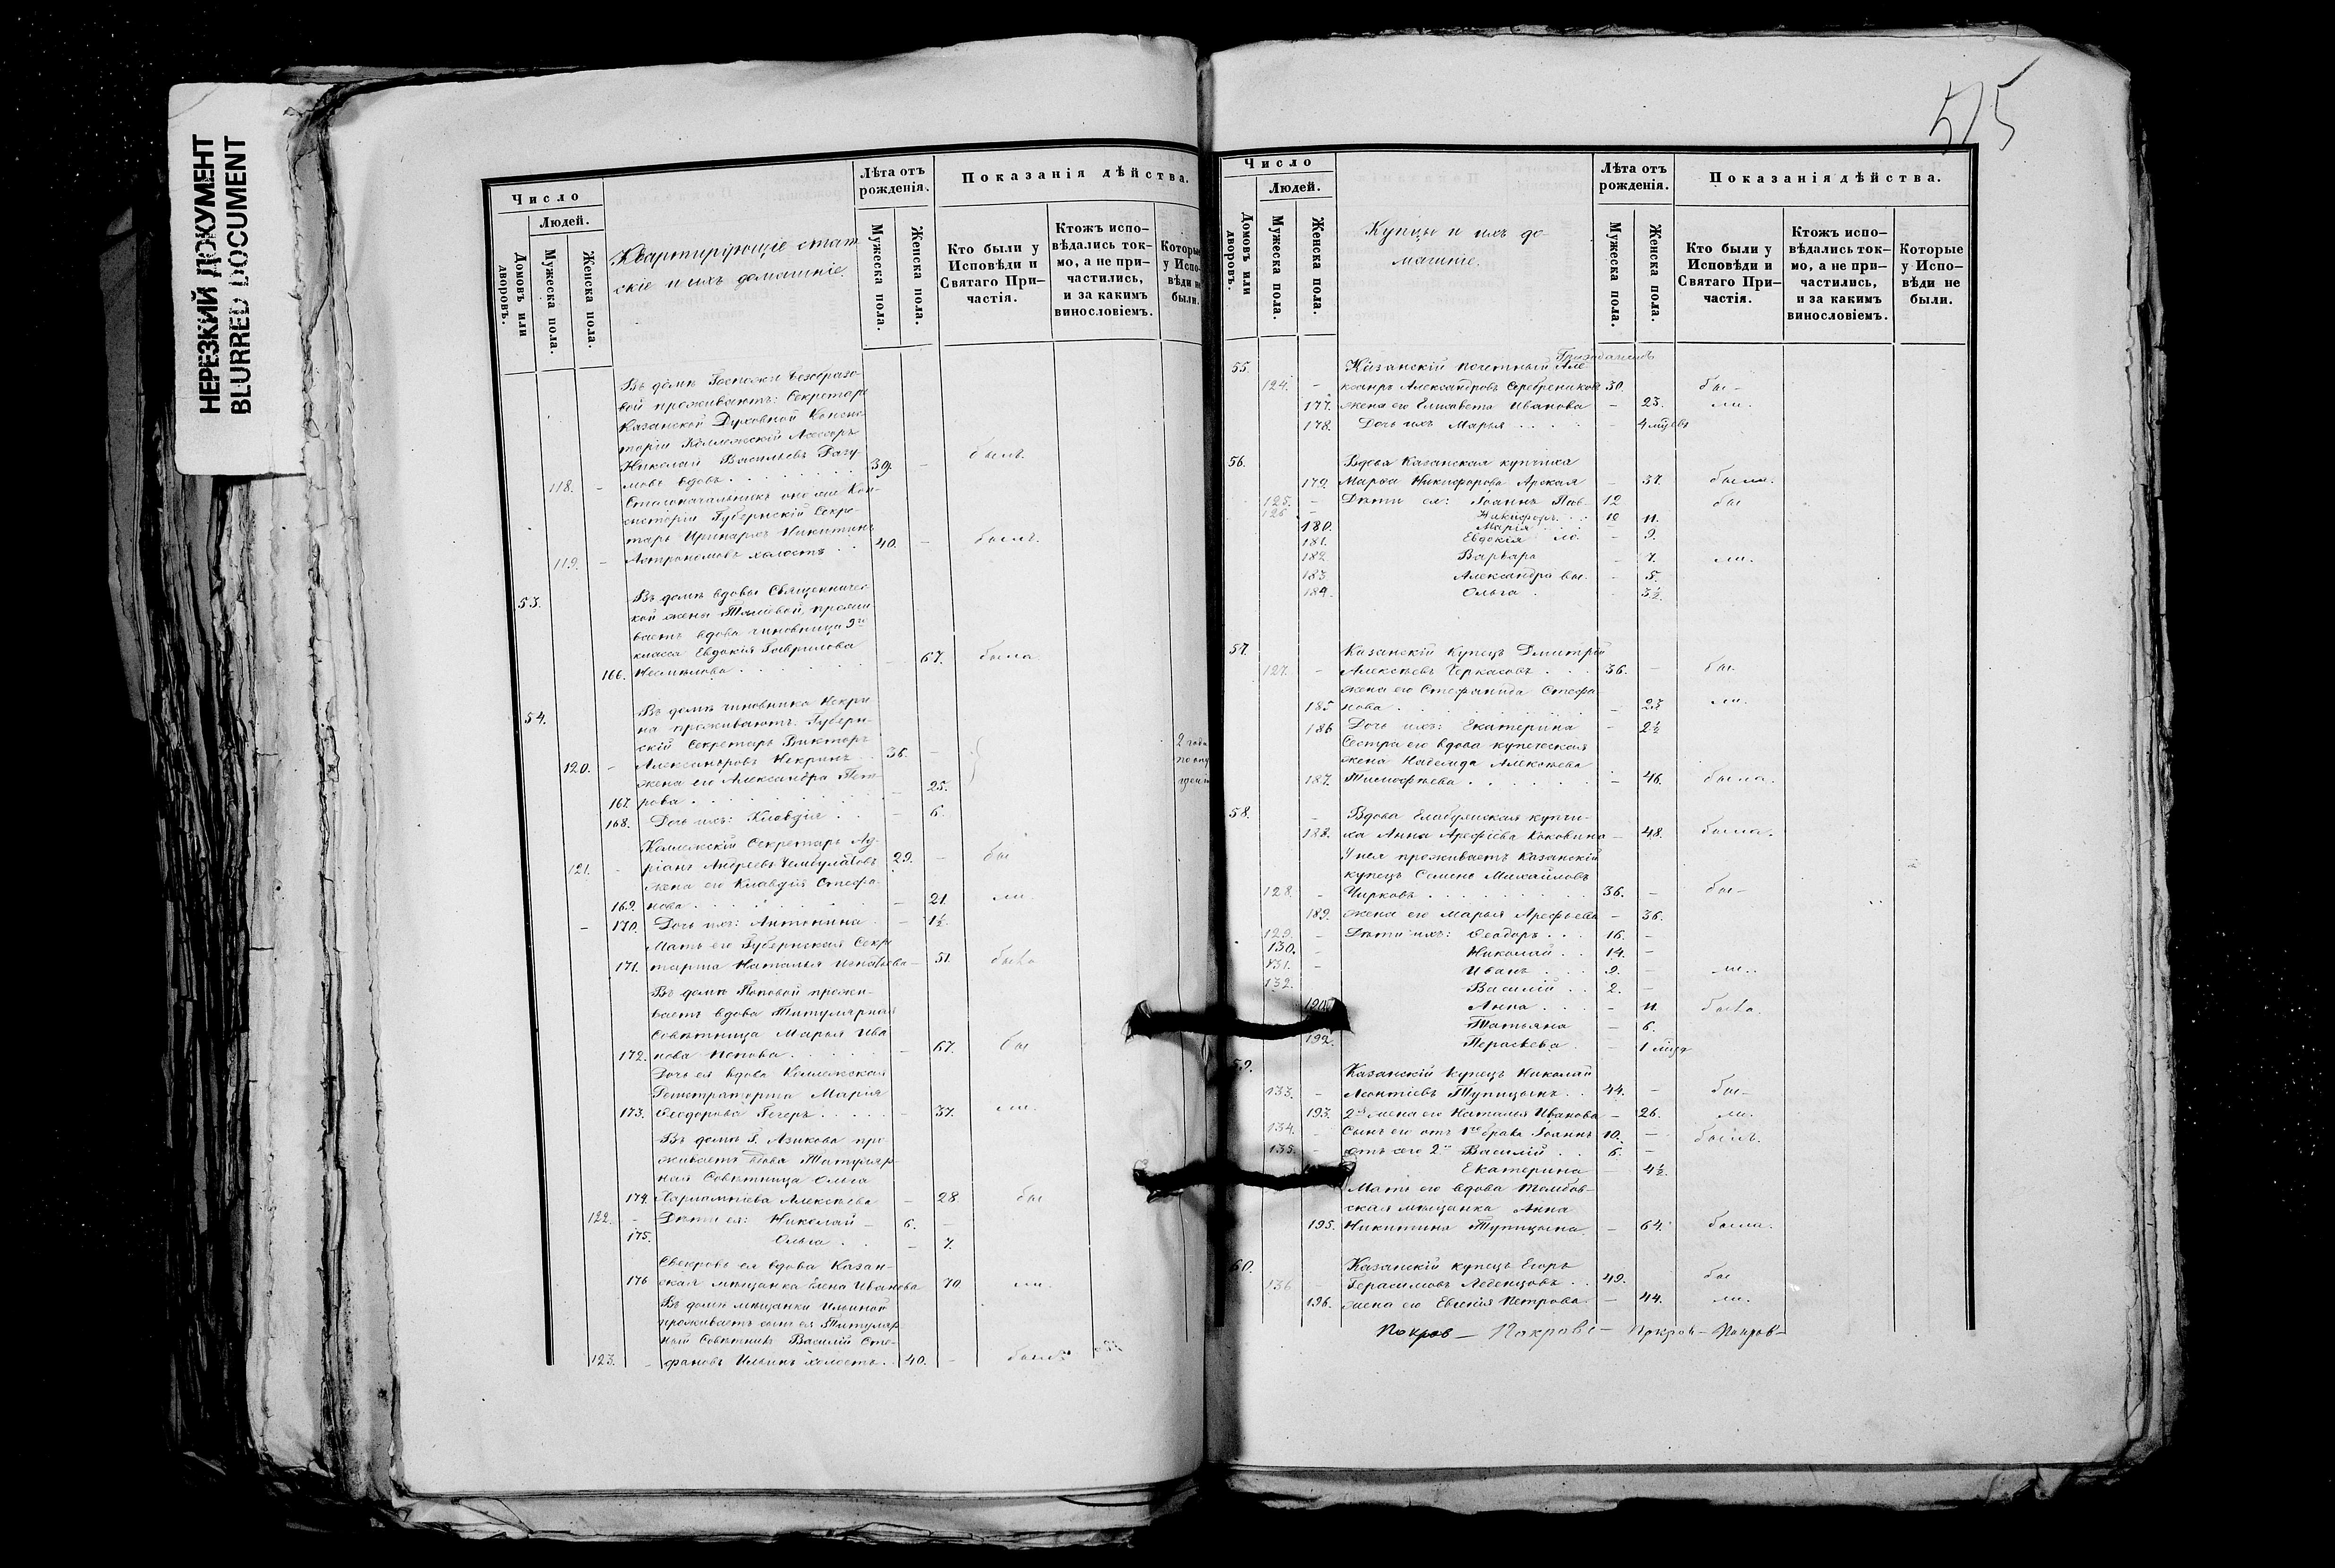 НЕРЕЗКИЙ ДОКУМЕНТ
BLURRED DOCUMENT
Число
Людей.
Домовъ или дворовъ.
Мужеска пола.
Женска пола.
Квартирующіе стат
скіе и ихъ домашніе.
Лѣта отъ рожденія.
Мужеска пола.
Женска пола.
Показанія дѣйства.
Кто были у Исповѣди и Святаго Причастія.
Ктожъ исповѣдались токмо, а не причастились, и за какимъ винословіемъ.
Которые у Исповѣди не были.
Въ домѣ Госпожи Безобразо-
вой проживаютъ: Секретарь
Казанской Духовной Консис
торіи Коллежскій Ассесоръ
Николай Васильевъ
118. - мовъ вдовъ 39. - былъ.
Столоначальникъ оной же Кон-
систоріи Губернскій Секре-
тарь Иринархъ Никитинъ
119. - Астрономовъ холостъ 40. - былъ.
53. Въ домѣ вдовы Священничес
кой жены прожи
ваетъ вдова чиновница 9го
класса Евдокія Гаврилова
166. Несмѣлова - 67. была
54. Въ домѣ чиновника Некри
на проживаютъ: Губерн-
скій Секретарь Викторъ
120. - Александровъ Некринъ 36. - 2 года
жена его Александра Пет
167. рова - 25.
168. Дочь ихъ: Клавдія - 6.
Коллежскій Секретарь Ад-
121. - ріанъ Андреевъ Чембулатовъ 29. - бы
жена его Клавдія Стефа
169. нова - 21. ли
- 170. Дочь ихъ: Антонина - 1½.
Мать его Губернская Секре
171. тарша Наталья Игнатьева - 51. была
Въ домѣ Поповой прожи-
ваетъ вдова Титулярная
Совѣтница Марья Ива
172. нова Попова - 67. бы
Дочь ея вдова Коллежская
Регистраторша Марія
173. Ѳеодорова Гегеръ - 37. ли.
Въ домѣ Г. Азикова про
живаетъ вдова Титуляр
ная Совѣтница Ольга
174. Харлампіева Алексѣева - 28. бы
122. - Дѣти ея: Николай - 6. -
175. Ольга - 7.
Свекровь ея вдова Казан-
176 ская мѣщанка Елена Иванова 70. ли.
Въ домѣ мѣщанки Ильиной
проживаетъ сынъ ея Титуляр
ный Совѣтникъ Василій Сте-
123. - фановъ Ильинъ холостъ 40. - былъ
515
Число
Людей.
Домовъ или дворовъ.
Мужеска пола.
Женска пола.
Купцы и ихъ до-
машніе.
Лѣта отъ рожденія.
Мужеска пола.
Женска пола.
Показанія дѣйства.
Кто были у Исповѣди и Святаго Причастія.
Ктожъ исповѣдались токмо, а не причастились, и за какимъ винословіемъ.
Которые у Исповѣди не были.
Гражданинъ
55. Казанскій почетный Але
124. - ксанръ Александровъ Серебрениковъ 30. бы-
177. жена его Елисавета Иванова - 23. ли.
178. Дочь ихъ Марья - 4 мѣсяц
56. Вдова Казанская купчиха
179. Марѳа Никифорова Арская - 37. была.
125. - Дѣти ея: Іоаннъ Пав- 12 бы
126 - Никифоръ 10
180. Марія - 11.
181. Евдокія ло. - 9.
182 Варвара - 7. ли.
183 Александра вы. - 5.
184. Ольга - 3½.
57. Казанскій Купецъ Дмитрій
127. - Алексѣевъ Черкасовъ 36. - бы.
жена его Стефанида Стефа
185 нова - 23 ли.
186 Дочь ихъ: Екатерина - 2½
Сестра его вдова купеческая
жена Надежда Алексѣева
187. Тимофѣева - 46. была.
58. - Вдова Елабужская купчи-
188. ха Анна Арефіева Коковина - 48. была.
У нея проживаетъ Казанскій
купецъ Семенъ Михайловъ
128. - Чирковъ 36. - бы-
189. жена его Марья Арефьева - 36.
129. - Дѣти ихъ: Ѳеодоръ 16. -
130. - Николай 14. -
131. - Иванъ 9. - ли.
132. Василій 2. -
190. Анна - 11. была.
Татьяна - 6.
192. - 1 мѣся
59. Казанскій Купецъ Николай
133. - Леонтіевъ Тупицынъ 44. - бы-
193. 2я жена его Наталья Иванова - 26. ли.
134. Сынъ его отъ 1го брака Іоаннъ 10. - былъ.
135. - отъ сего 2го Василій 6. -
Екатерина - 4½.
Мать его вдова Тамбов-
ская мѣщанка Анна
195. Никитина Тупицына - 64. была.
60. Казанскій купецъ Егоръ
136 - Герасимовъ Леденцовъ 49. бы
196. жена его Евгенія Петрова - 44. ли.
Покров- Покрове- Покров- Покров-